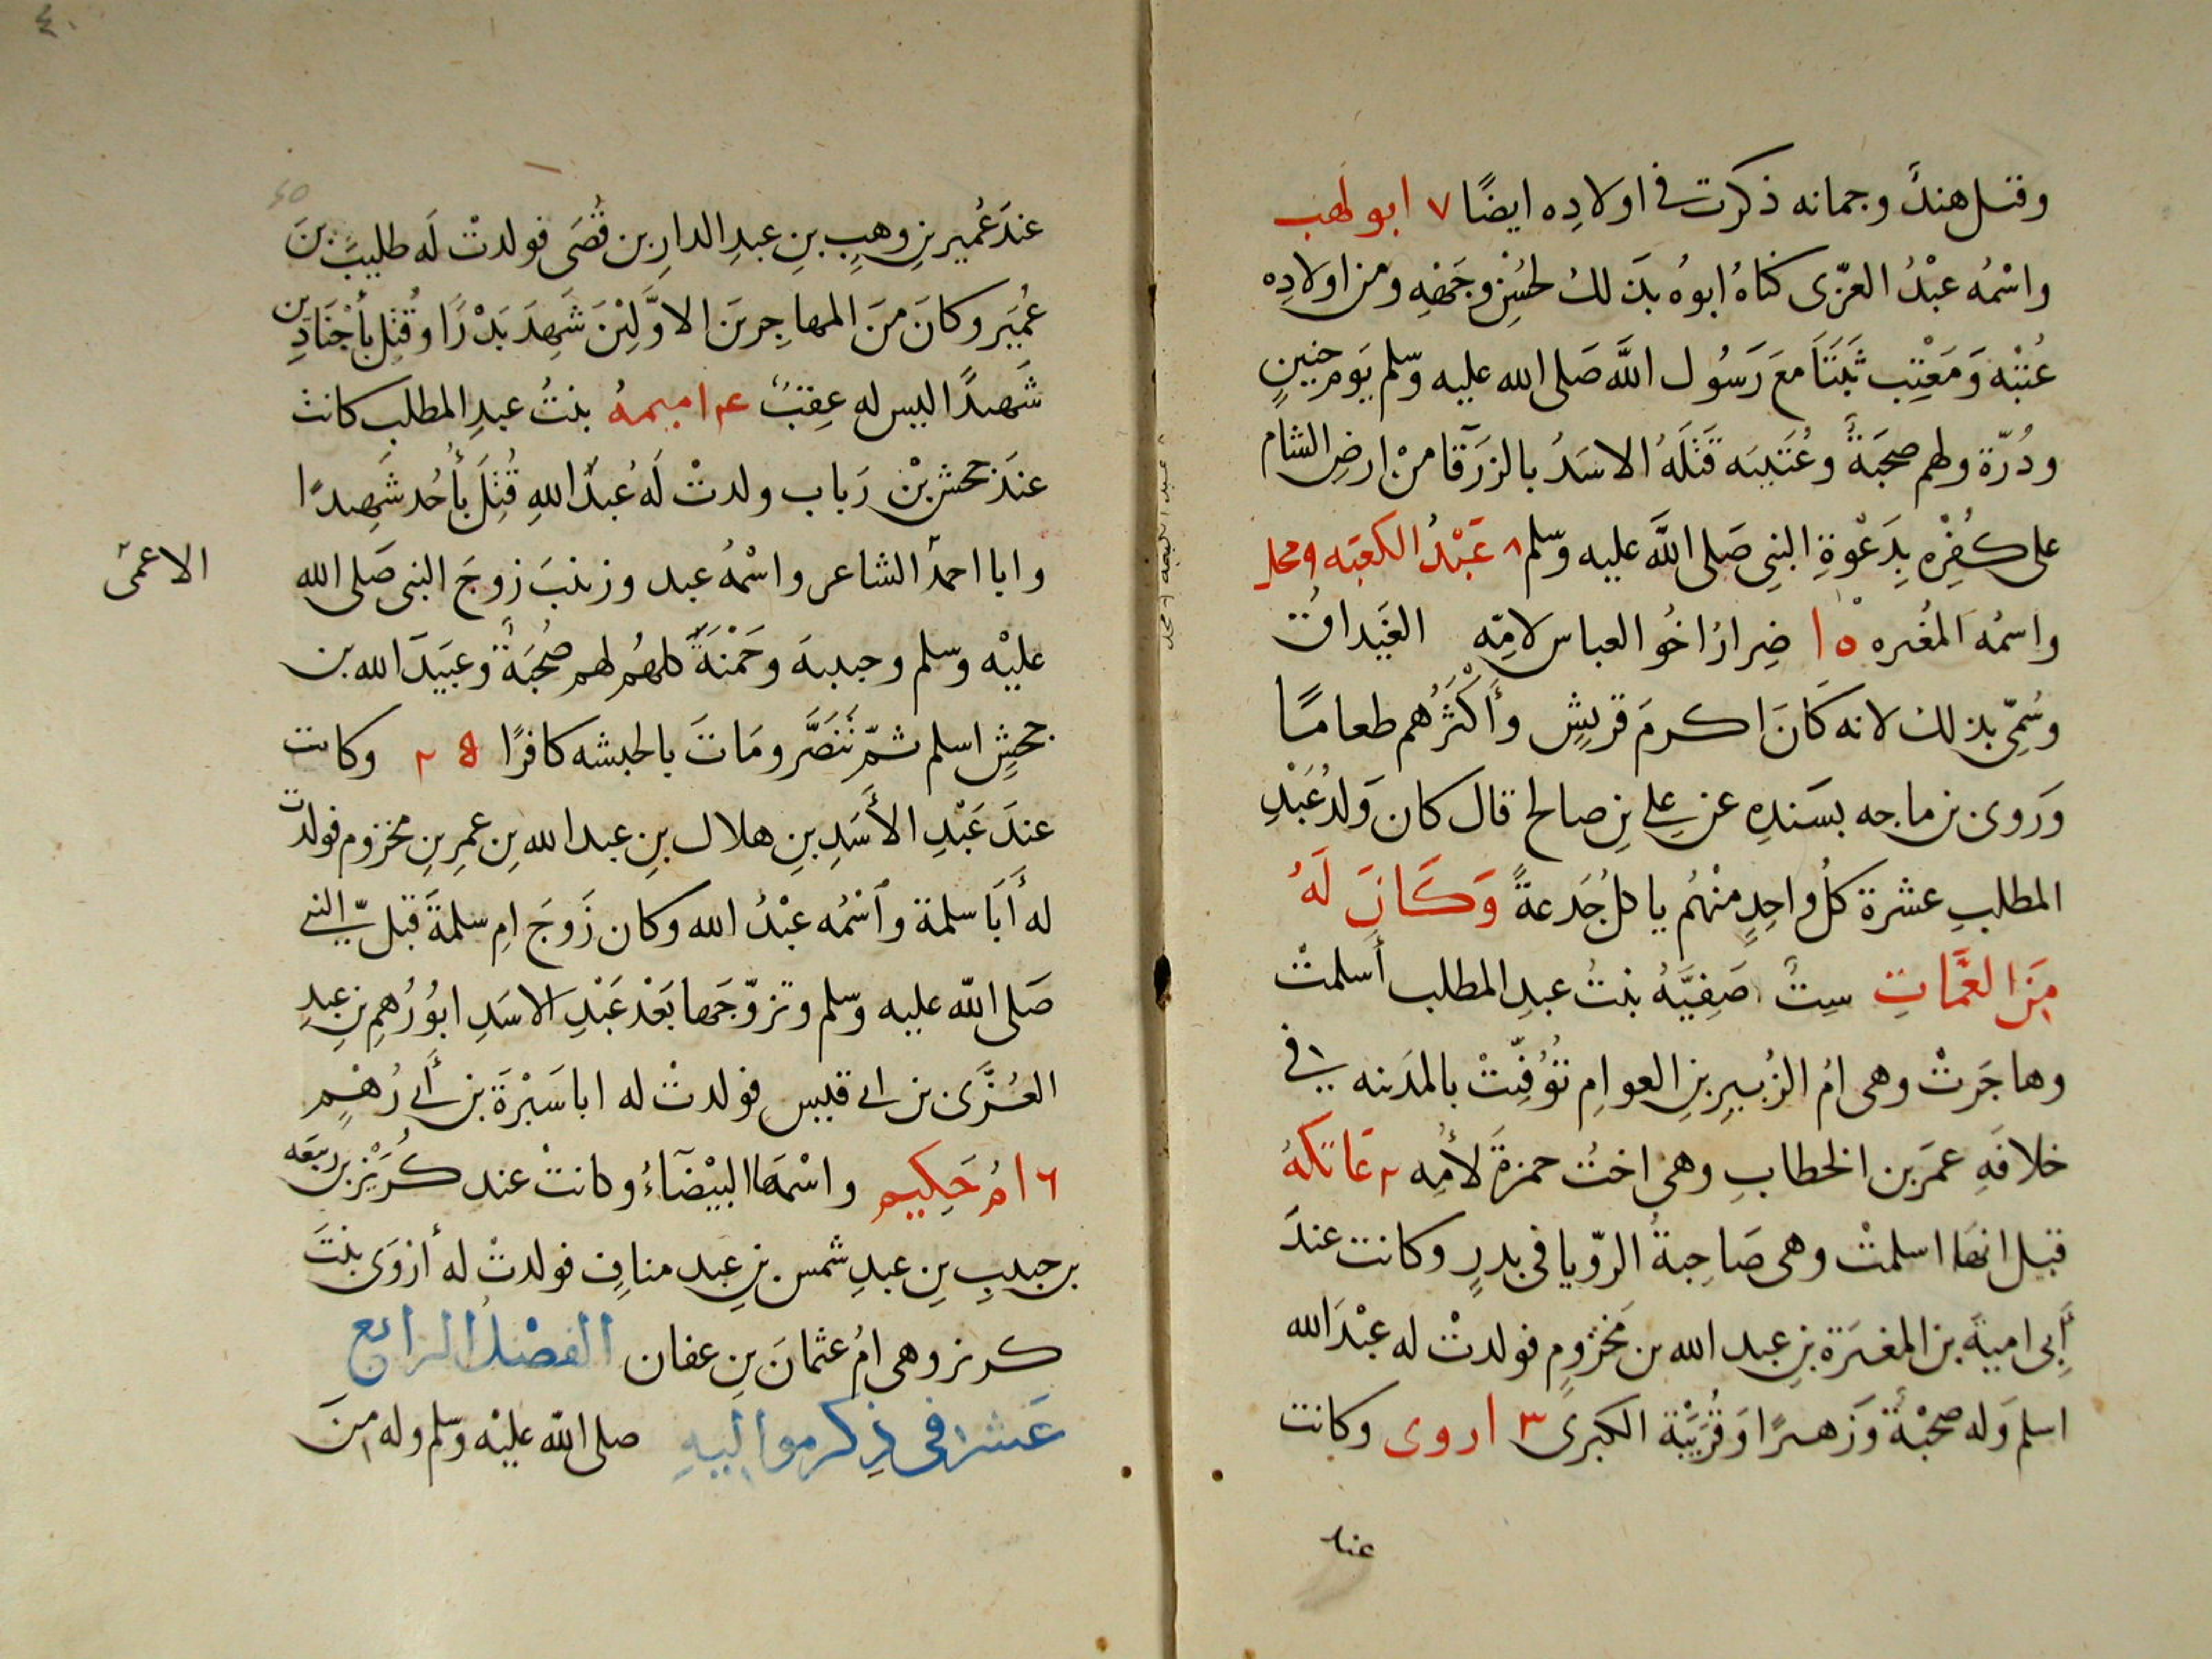 وقتل هند وجمانه ذكرت في اولاده ايضًا ٧ ابو لهب
واسْمُه عبْدُ العزّى كناهُ ابوهُ بذلك لحُسْنِ وجَهْهِ ومن اولادِه
عُتْبْه وَمَعْتِب ثَبَتَا معَ رَسُول اللَّه صَلى الله عليه وسّلم يَوم حنينٍ
ودُرّة ولهم صحبَةٌ وعُتَيبَه قَتَلَهُ الاسَدُ بالزرَقآ منْ ارضِ الشام
على كُفِرْه بِدَعْوةِ النبِى صَلى اللَّه عليه وسّلم ٨ عَبْدُ الكعبَه ٩ محل
واسمُه المغُيره ١٠ ضِرارُ اخُو العباس لامِّه الغَيداقُ
وسُمِّى بذلك لانه كَانَ اكرمَ قريشٍ وأَكْثَرُهم طعامًا
وَروى بن ماجه بسَندِه عن علي بنِ صالح قال كان وَلدُ عَبْدِ
المطلبِ عشرة كلُ واحِدٍ منْهُم ياكل جَدعةً وَكَانَ لَهُ
مِنَ العَمَّاتِ سِتُ صَفِيَّهُ بنتُ عبدِ المطلب أَسلمتْ
وهاجَرتْ وهى امُ الزُبيرِ بنِ العوامِ تُوُفِّيتْ بالمدَينه في
خلافَهِ عمَر بن الخطابِ وهى اختُ حمزةَ لأُمِه ٢ عَاتكهُ
قبل انهَا اسلمتْ وهى صَاحِبةُ الرّويا فى بدرٍ وكانت عندَ
أَبِى اميةَ بن المغيَرة بنِ عبد الله بن مَخزُومٍ فولدتْ له عبْدَ الله
اسلم وَله صحْبْةٌ وَزَهيرًا وَقُرَيَبْة الكبرى ٣ اروى وكانت
عند
عندَ عُميرِ بنِ وهبٍ بنِ عبدِ الدارِ بن قُصَى فولدتْ لَه طليبَ بنَ
عُميَر وكانَ مَنَ المهاجِرينَ الاوَّلِيْنَ شَهِدَ بَدْرًا وقُتِل بأَجْنَادِين
شَهيدًا ليس له عِقبٌ ٤ اميمهُ بنتُ عبدِ المطلب كانت
عندَ جحشِ بْن رَباب ولدتْ لَه عُبدَ اللهِ قُتِلَ بأُحُد شَهِيدًا
وابا احمدَ الشاعر واسْمُه عبد وزينبَ زوجَ النبى صَلى الله
الاعمى
عليْه وسّلم وحبيبهَ وحَمْنَةَ كلهُم لهم صُحْبَةٌ وعبَيدَ الله بن
جحشٍ اسلم ثمّ تَنَصَّر ومَاتَ بالحبشه كافرًا ٥ وكانت
عندَ عَبْدِ الأَسَدِ بنِ هلال بنِ عبد الله بنِ عمرِ بنِ مخزوم فولدت
له أَبَا سلمة وٱسْمُه عبْدُ الله وكان زَوجَ امِ سلمةَ قبل النبيّ
صَلى اللّه عليه وسّلم وتزوّجَها بَعْدَ عَبْدِ الاسَدِ ابوُ رُهمِ بنِ عبدِ
العُزَّى بن ابي قيس فولدتْ له اباسَبْرَةَ بن أَبي رُهْمٍ
٦ امُ حَكِيم واسْمهَا البيْضَآءُ وكانتْ عند كُرَيْزِ بن ربيعَه
بن حبيبِ بنِ عبدِ شمس بنِ عبد منافٍ فولدتْ له أَرْوَى بنتَ
كريز وهى امُ عثمانَ بنِ عفان الفصْلُ الرابع
عَشر فى ذِكر مواليهِ صلى اللّه عليْه وسّلم وله منَ